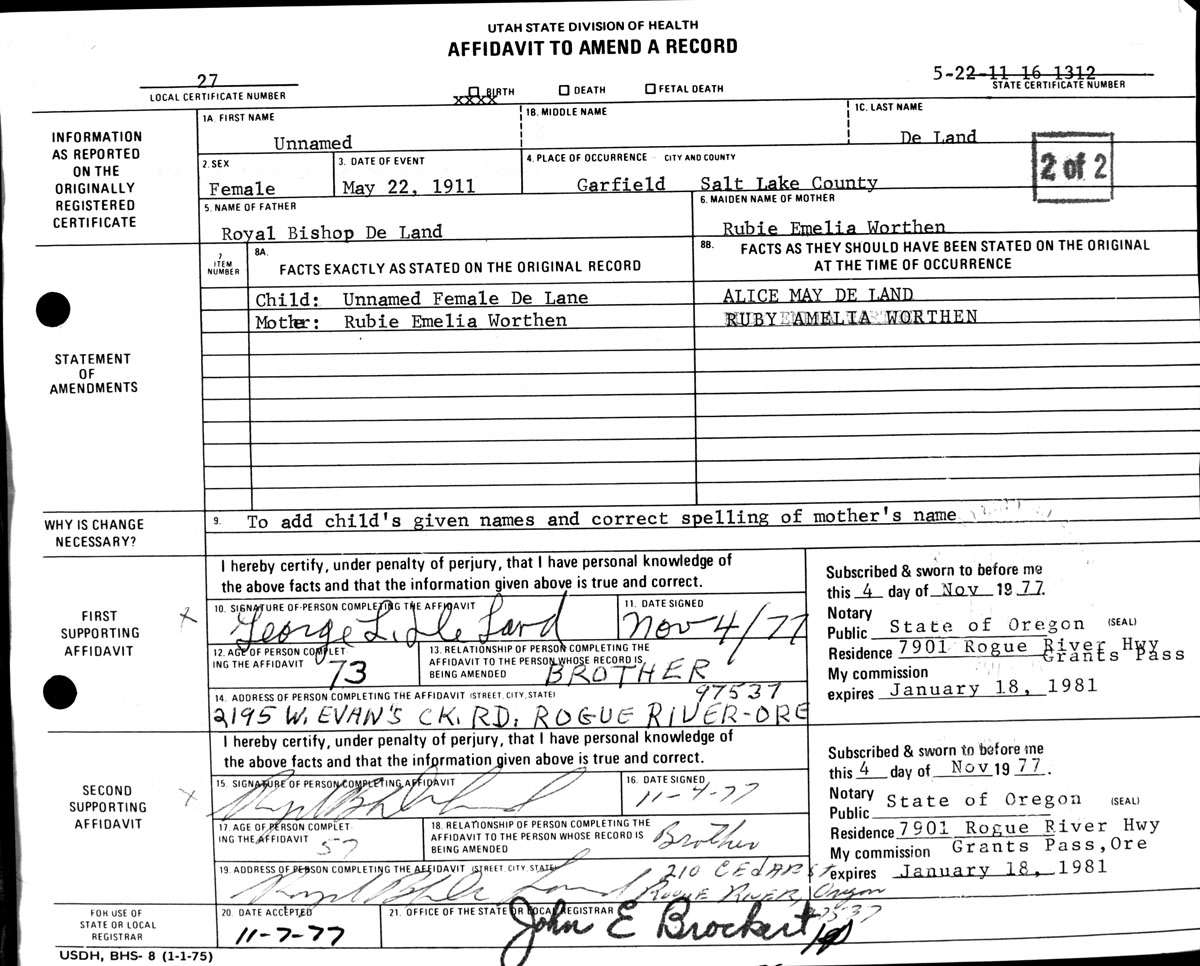 UTAH STATE DIVISION OF HEALTH
AFFIDAVIT TO AMEND A RECORD
27
LOCAL CERTIFICATE NUMBER
XXXX BIRTH DEATH FETAL DEATH
5-22-11 16 1312
STATE CERTIFICATE NUMBER
INFORMATION
AS REPORTED
ON THE
ORIGINALLY
REGISTERED
CERTIFICATE
1A FIRST NAME
Unnamed
1B. MIDDLE NAME
1C. LAST NAME
De Land
2 of 2
2. SEX
Female
3. DATE OF EVENT
May 22, 1911
4. PLACE OF OCCURRENCE - CITY AND COUNTY
Garfield Salt Lake County
5. NAME OF FATHER
Royal Bishop De Land
6. MAIDEN NAME OF MOTHER
Rubie Emelia Worthen
STATEMENT
OF
AMENDMENTS
7
ITEM
NUMBER
8A.
FACTS EXACTLY AS STATED ON THE ORIGINAL RECORD
8B. FACTS AS THEY SHOULD HAVE BEEN STATED ON THE ORIGINAL
AT THE TIME OF OCCURRENCE
Child: Unnamed Female De Lane
ALICE MAY DE LAND
Mother: Rubie Emelia Worthen
RUBY AMELIA WORTHEN
WHY IS CHANGE
NECESSARY?
9. To add child's given names and correct spelling of mother's name
FIRST
SUPPORTING
AFFIDAVIT
X
I hereby certify, under penalty of perjury, that I have personal knowledge of
the above facts and that the information given above is true and correct.
10. SIGNATURE OF PERSON COMPLETING THE AFFIDAVIT
George L. De Land
11. DATE SIGNED
Nov 4/77
12. AGE OF PERSON COMPLET
ING THE AFFIDAVIT
73
13. RELATIONSHIP OF PERSON COMPLETING THE
AFFIDAVIT TO THE PERSON WHOSE RECORD IS
BEING AMENDED
BROTHER
14. ADDRESS OF PERSON COMPLETING THE AFFIDAVIT (STREET, CITY, STATE)
97537
2195 W. EVAN'S CK. RD. ROGUE RIVER-ORE
Subscribed & sworn to before me
this 4 day of Nov 1977.
Notary
Public State of Oregon (SEAL)
Residence 7901 Rogue River Hwy
Grants Pass
My commission
expires January 18, 1981
SECOND
SUPPORTING
AFFIDAVIT
X
I hereby certify, under penalty of perjury, that I have personal knowledge of
the above facts and that the information given above is true and correct.
15. SIGNATURE OF PERSON COMPLETING AFFIDAVIT
16. DATE SIGNED
11-4-77
17. AGE OF PERSON COMPLET
ING THE AFFIDAVIT
57
18. RELATIONSHIP OF PERSON COMPLETING THE
AFFIDAVIT TO THE PERSON WHOSE RECORD IS
BEING AMENDED
Brother
19. ADDRESS OF PERSON COMPLETING THE AFFIDAVIT (STREET, CITY, STATE)
210 CEDAR ST
ROGUE RIVER, Oregon
97537
Subscribed & sworn to before me
this 4 day of Nov 1977.
Notary
Public State of Oregon (SEAL)
Residence 7901 Rogue River Hwy
My commission Grants Pass, Ore
expires January 18, 1981
FOR USE OF
STATE OR LOCAL
REGISTRAR
20. DATE ACCEPTED
11-7-77
21. OFFICE OF THE STATE OR LOCAL REGISTRAR
John E Brockert
USDH, BHS- 8 (1-1-75)